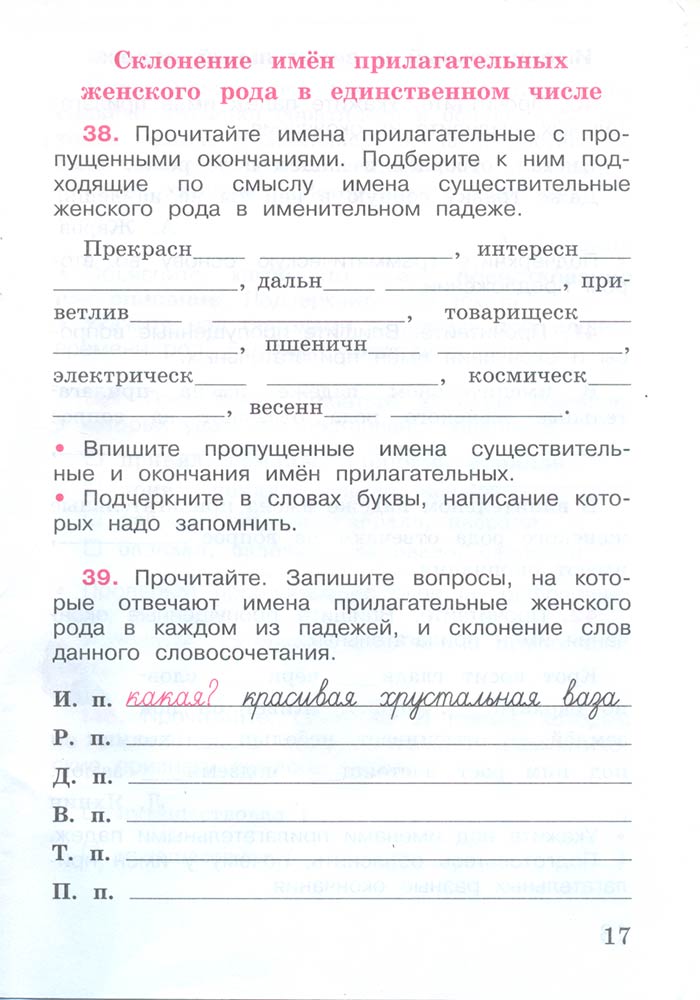 Склонение имён прилагательных
женского рода в единственном числе
38. Прочитайте имена прилагательные с про-
пущенными окончаниями. Подберите к ним под-
ходящие по смыслу имена существительные
женского рода в именительном падеже.
Прекрасн____ ____________, интересн____
____________, дальн____ ____________, при-
ветлив____ ____________, товарищеск____
____________, пшеничн____ ____________,
электрическ____ ____________, космическ____
____________, весенн____ ____________.
• Впишите пропущенные имена существитель-
ные и окончания имён прилагательных.
• Подчеркните в словах буквы, написание кото-
рых надо запомнить.
39. Прочитайте. Запишите вопросы, на кото-
рые отвечают имена прилагательные женского
рода в каждом из падежей, и склонение слов
данного словосочетания.
И. п. какая? красивая хрустальная ваза
Р. п.
Д. п.
В. п.
Т. п.
П. п.
17